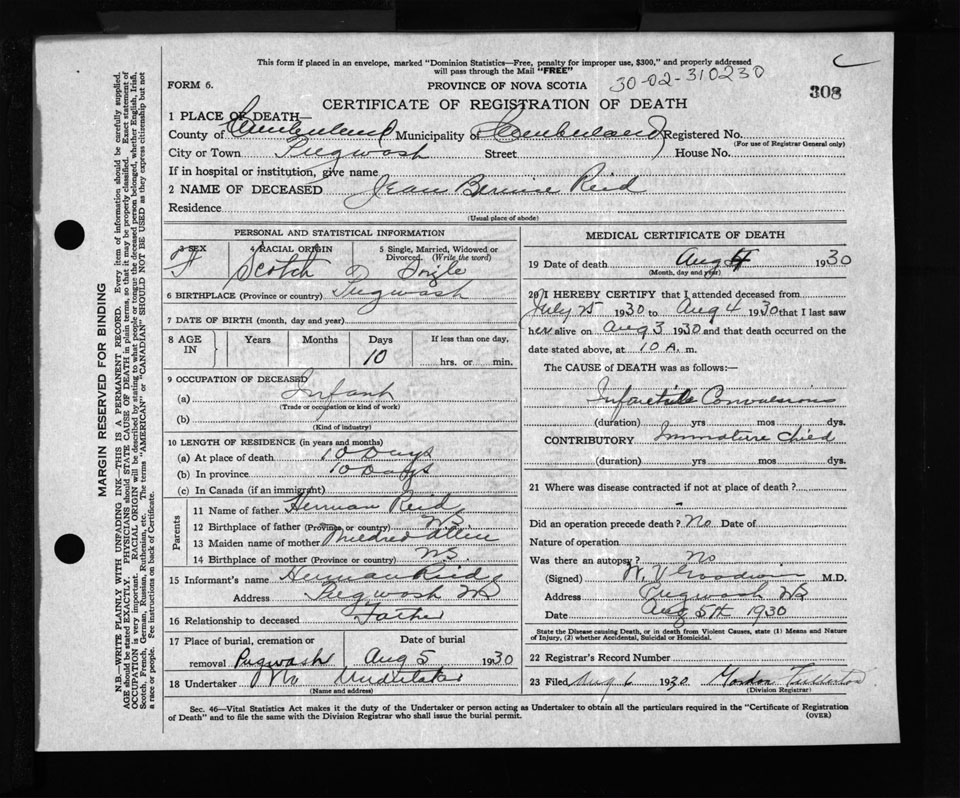 This form if placed in an envelope, marked "Dominion Statistics—Free, penalty for improper use, $300," and properly addressed
will pass through the Mail "FREE"
FORM 6.
PROVINCE OF NOVA SCOTIA
30-02-310230
308
CERTIFICATE OF REGISTRATION OF DEATH
1 PLACE OF DEATH—
County of Cumberland Municipality of Cumberland Registered No.
(For use of Registrar General only)
City or Town Pugwash Street House No.
If in hospital or institution, give name
2 NAME OF DECEASED Jean Bernice Reid
Residence
(Usual place of abode)
PERSONAL AND STATISTICAL INFORMATION
3 SEX 4 RACIAL ORIGIN 5 Single, Married, Widowed or
Divorced. (Write the word)
F Scotch Single
6 BIRTHPLACE (Province or country) Pugwash
7 DATE OF BIRTH (month, day and year)
8 AGE IN Years Months Days If less than one day,
10 hrs. or min.
9 OCCUPATION OF DECEASED
(a) Infant
(Trade or occupation or kind of work)
(b)
(Kind of industry)
10 LENGTH OF RESIDENCE (in years and months)
(a) At place of death 10 Days
(b) In province 10 Days
(c) In Canada (if an immigrant)
Parents
11 Name of father Herman Reid
12 Birthplace of father (Province or country) NS.
13 Maiden name of mother Mildred Allen
14 Birthplace of mother (Province or country) NS.
15 Informant's name Herman Reid
Address Pugwash NS
16 Relationship to deceased Father
17 Place of burial, cremation or Date of burial
removal Pugwash Aug 5 1930
18 Undertaker No Undertaker
(Name and address)
MEDICAL CERTIFICATE OF DEATH
19 Date of death Aug 4 1930
(Month, day and year)
20 I HEREBY CERTIFY that I attended deceased from
July 25 1930 to Aug 4 1930 that I last saw
her alive on Aug 3 1930 and that death occurred on the
date stated above, at 10 A. m.
The CAUSE of DEATH was as follows:—
Infantile Convulsions
(duration) yrs mos dys.
CONTRIBUTORY Immature child
(duration) yrs mos dys.
21 Where was disease contracted if not at place of death?
Did an operation precede death? No Date of
Nature of operation
Was there an autopsy? No
(Signed) Goodwin M.D.
Address Pugwash NS
Date Aug 5th 1930
State the Disease causing Death, or in death from Violent Causes, state (1) Means and Nature
of Injury, (2) whether Accidental, Suicidal or Homicidal.
22 Registrar's Record Number
23 Filed Aug 6 1930 Gordon Fullerton
(Division Registrar)
Sec. 46—Vital Statistics Act makes it the duty of the Undertaker or person acting as Undertaker to obtain all the particulars required in the "Certificate of Registration
of Death" and to file the same with the Division Registrar who shall issue the burial permit.
(OVER)
MARGIN RESERVED FOR BINDING
N.B.—WRITE PLAINLY WITH UNFADING INK—THIS IS A PERMANENT RECORD. Every item of information should be carefully supplied.
AGE should be stated EXACTLY. PHYSICIANS should STATE CAUSE OF DEATH in plain terms, so that it may be properly classified. Exact statement of
OCCUPATION is very important. RACIAL ORIGIN will be described by stating to what people or tongue the deceased person belonged, whether English, Irish,
Scotch, French, German, Russian, Ruthenian, etc. The terms "AMERICAN" or "CANADIAN" SHOULD NOT BE USED as they express citizenship but not
a race or people. See instructions on back of Certificate.